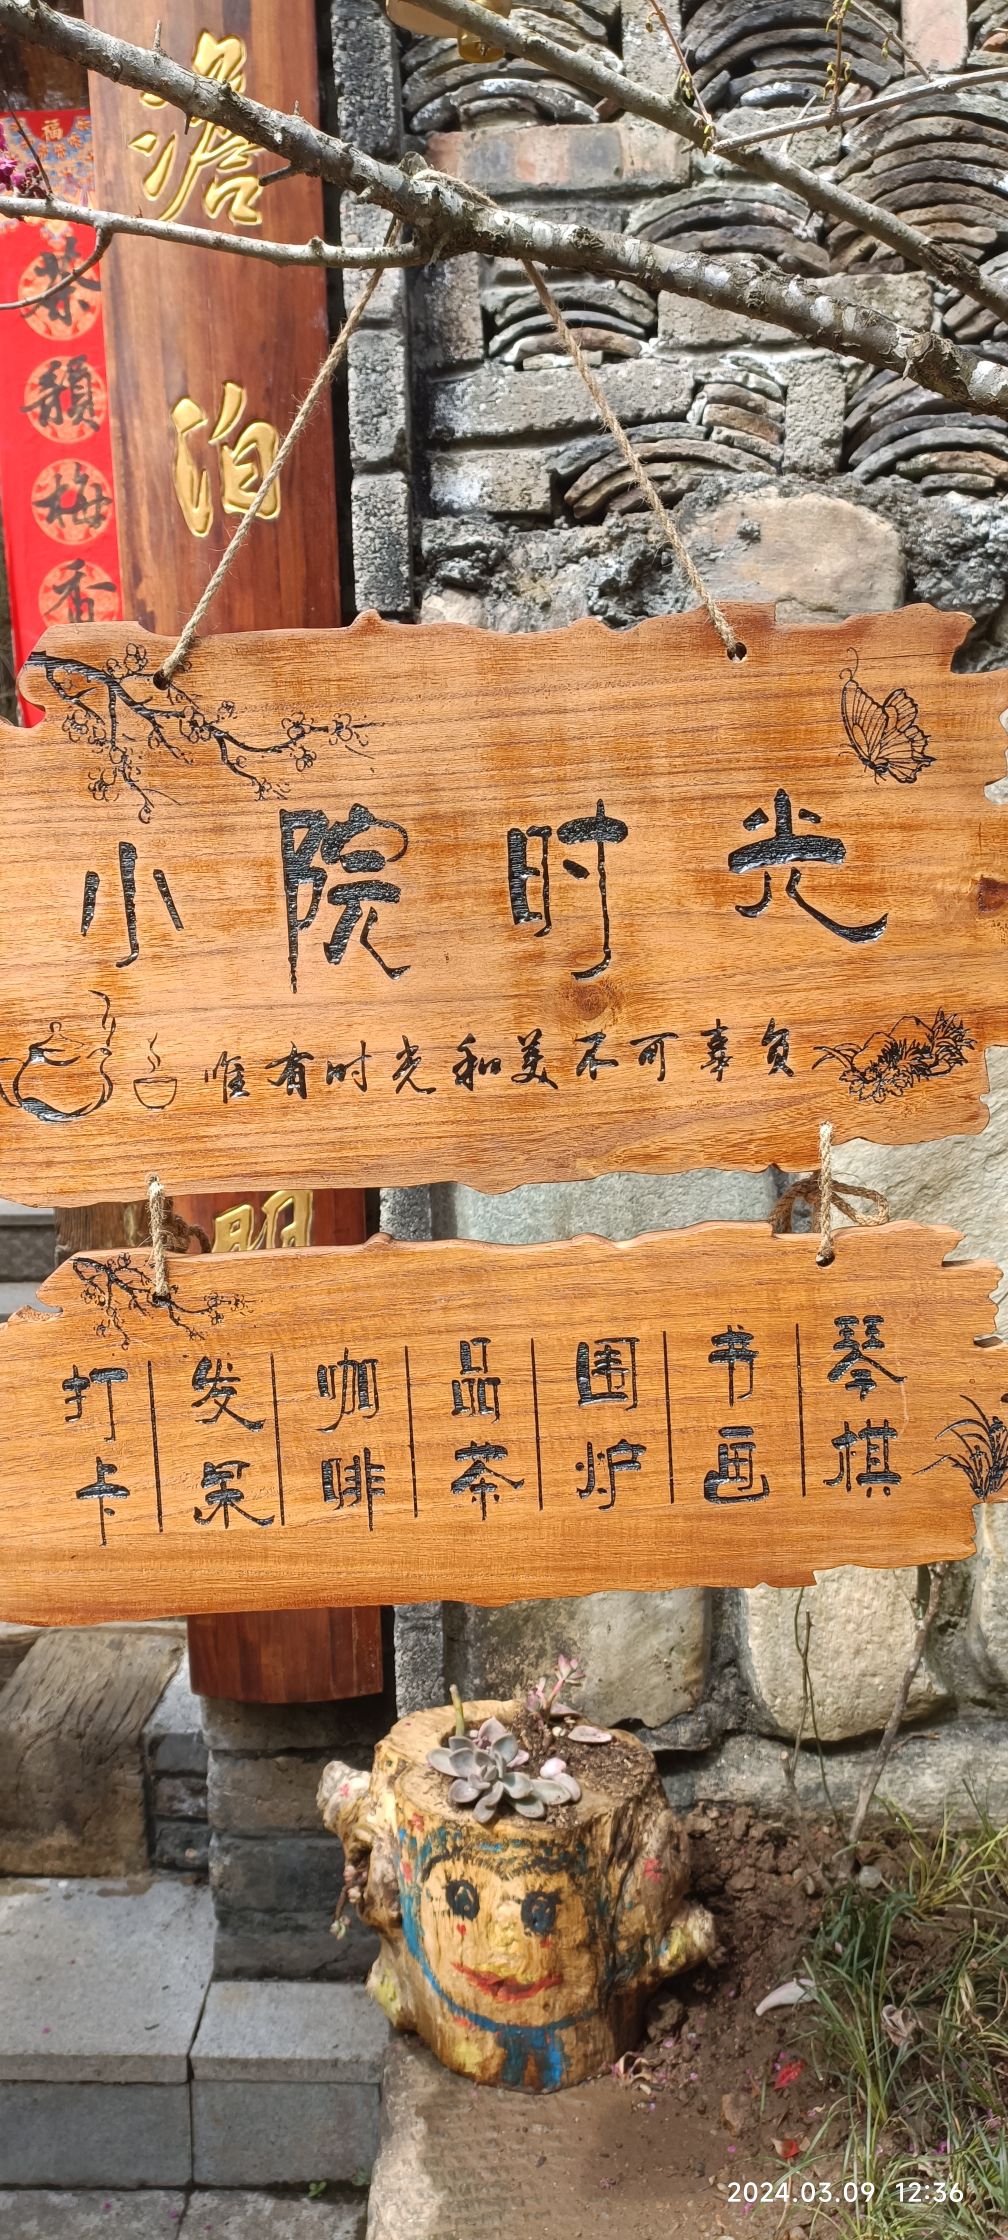 福
茶
韻
梅
香
澹
泊
明
小院时光
唯有时光和美不可辜负
琴棋
书画
围炉
品茶
咖啡
发呆
打卡
2024.03.09 12:36